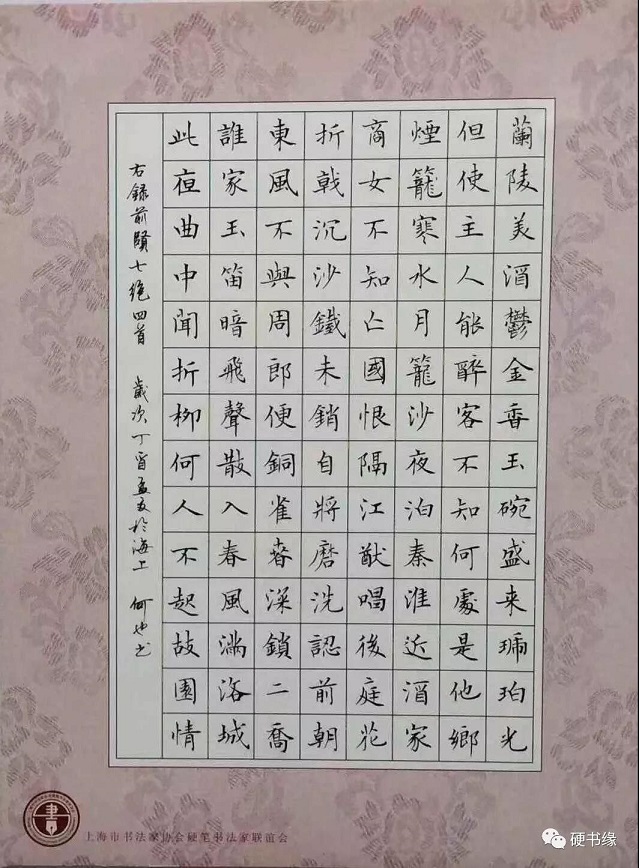 蘭陵美酒鬱金香玉碗盛来琥珀光
但使主人能醉客不知何處是他鄉
煙籠寒水月籠沙夜泊秦淮近酒家
商女不知亡國恨隔江猷唱後庭花
折戟沉沙鐵未銷自將磨洗認前朝
東風不與周郎便銅雀春深鎖二喬
誰家玉笛暗飛聲散入春風滿洛城
此夜曲中聞折柳何人不起故園情
右録前賢七絕四首 歲次丁酉孟夏於海上 何也书
上海市书法家协会硬笔书法家联谊会
硬书缘